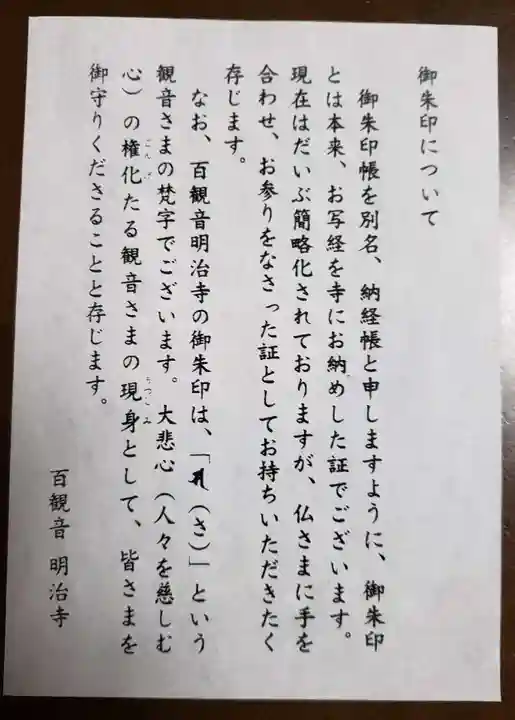 御朱印について
御朱印帳を別名、納経帳と申しますように、御朱印
とは本来、お写経を寺にお納めした証でございます。
現在はだいぶ簡略化されておりますが、仏さまに手を
合わせ、お参りをなさった証としてお持ちいただきたく
存じます。
なお、百観音明治寺の御朱印は、「𑖭(さ)」という
観音さまの梵字でございます。大悲心(人々を慈しむ
心)の権化たる観音さまの現身として、皆さまを
御守りくださることと存じます。
百観音 明治寺